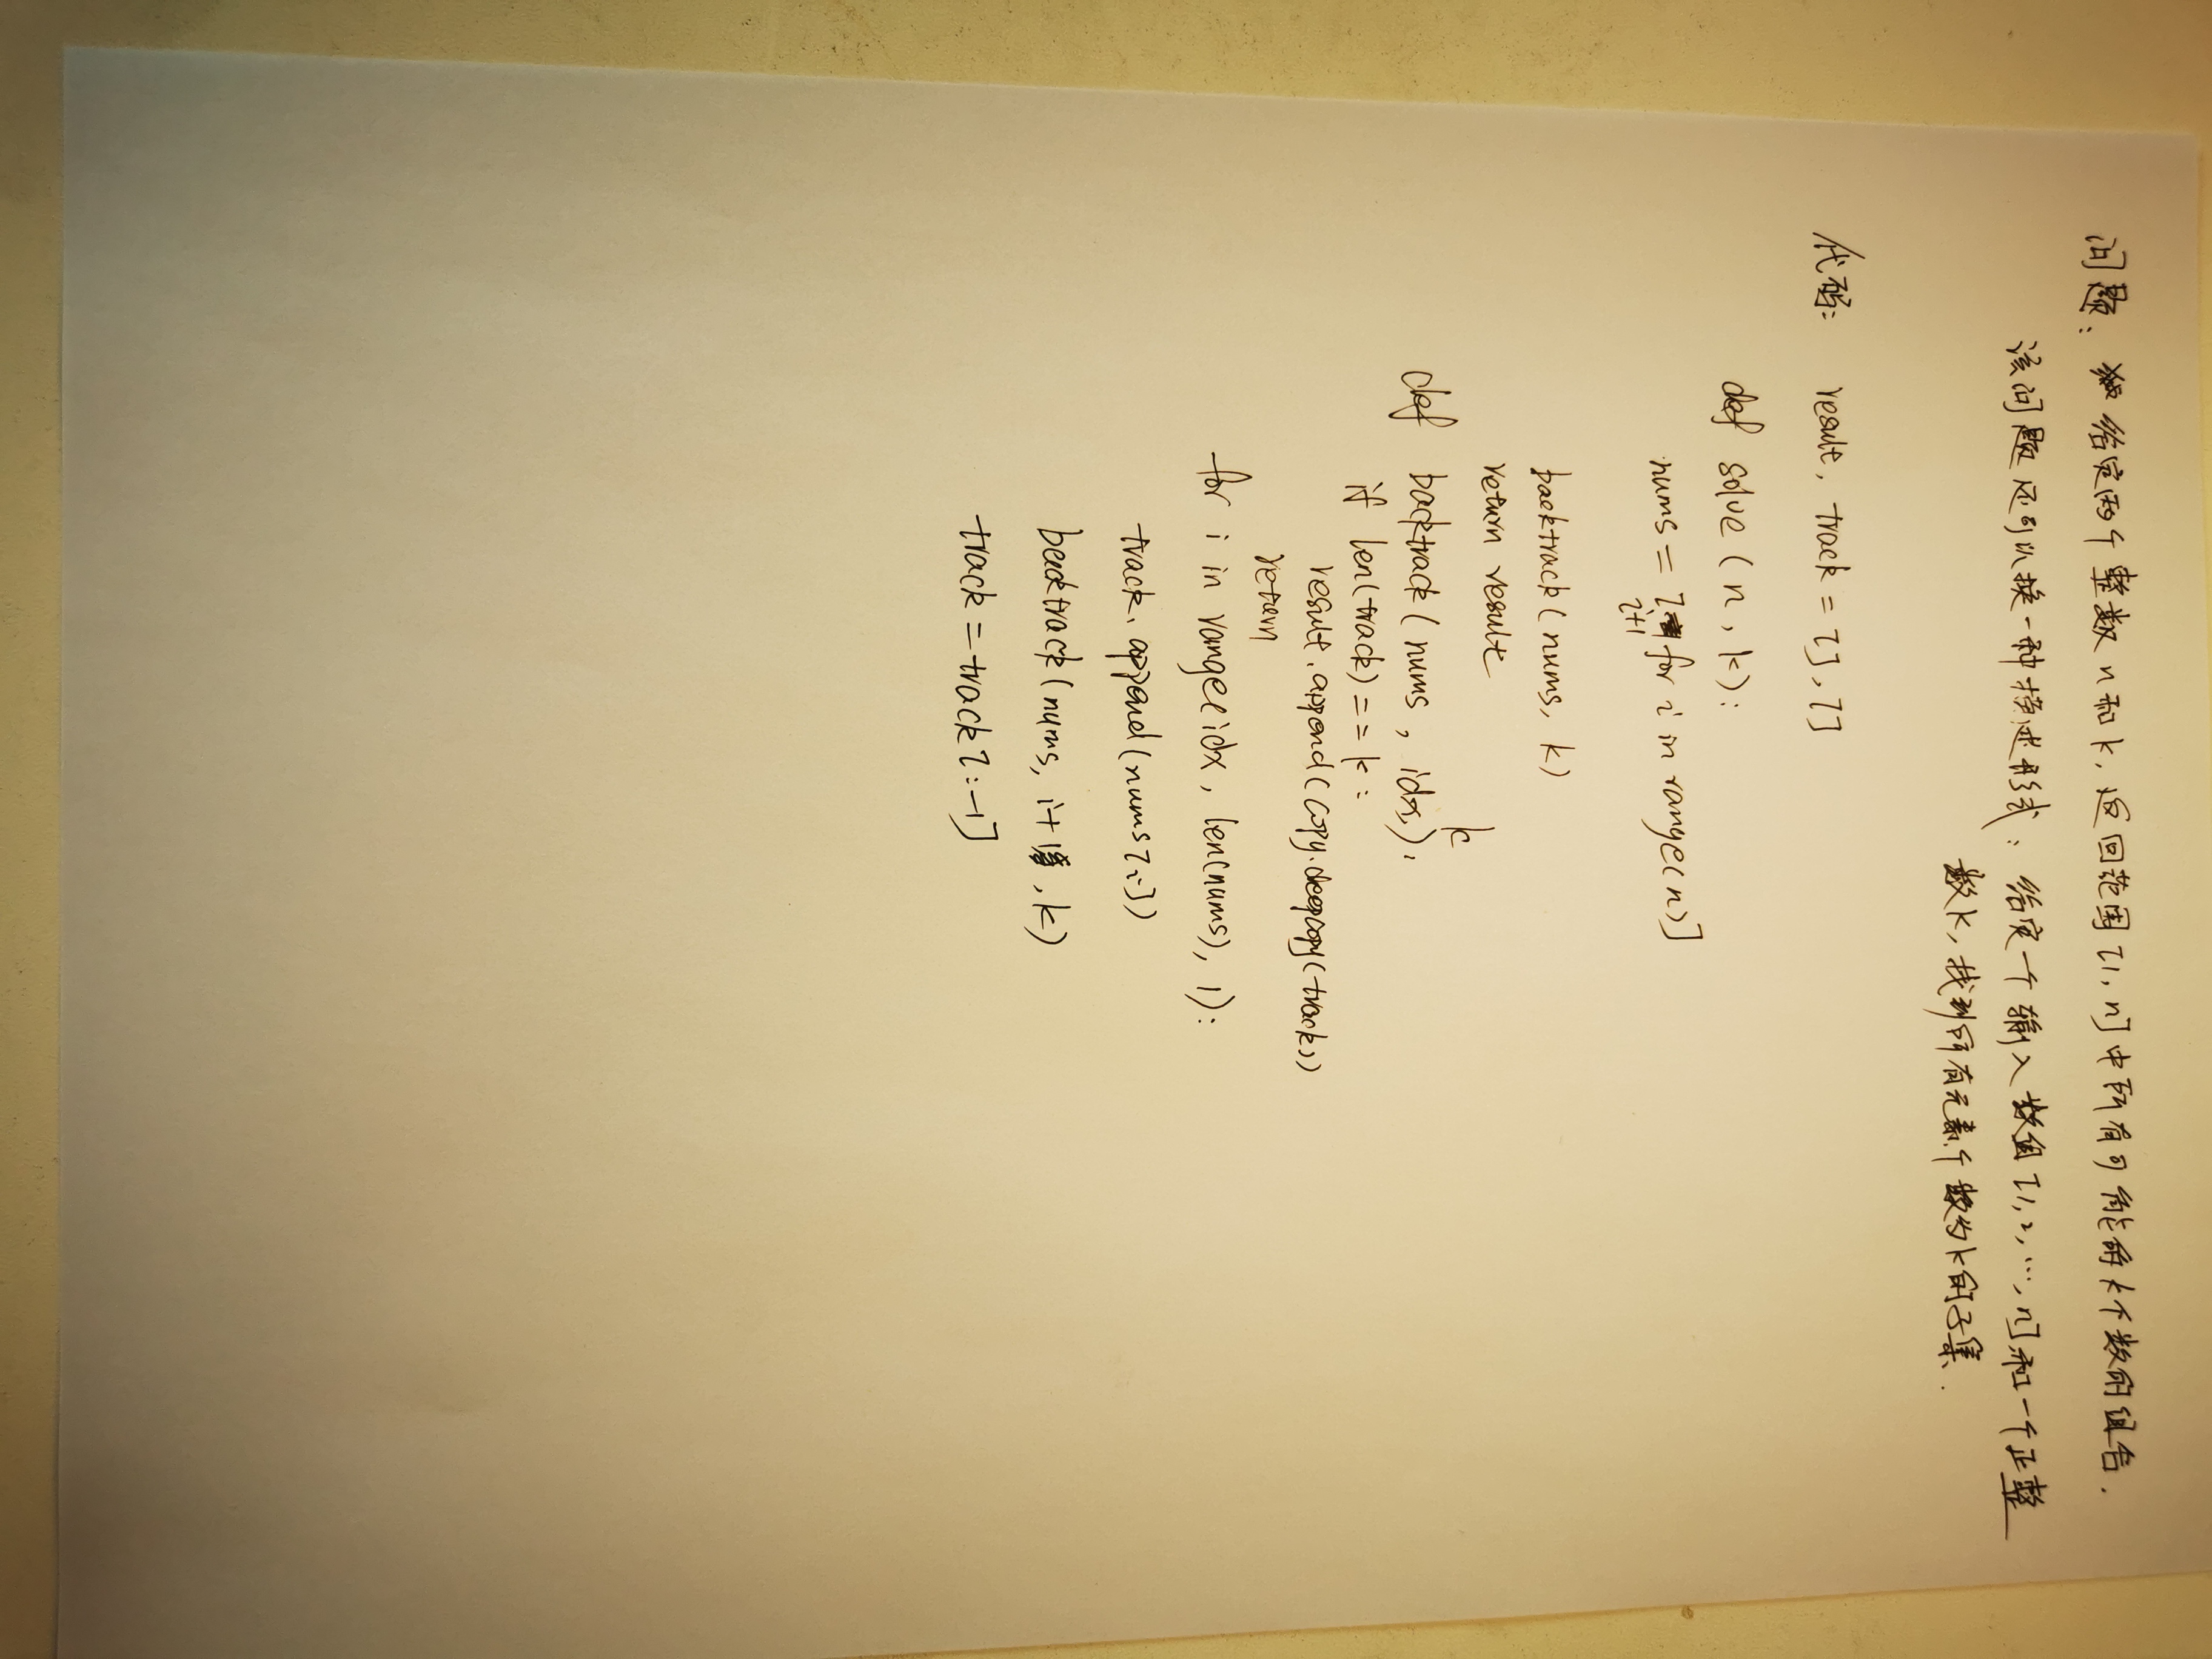 问题：给定两个整数 n 和 k，返回范围 [1, n] 中所有可能的 k 个数的组合.
该问题还可以换一种描述形式：给定一个输入数组 [1, 2, ..., n] 和一个正整
数 k, 找到所有元素个数为 k 的子集.
代码: result, track = [], []
def solve (n, k):
nums = [i+1 for i in range(n)]
backtrack(nums, k)
return result
def backtrack(nums, idx, k):
if len(track) == k:
result.append(copy.deepcopy(track))
return
for i in range(idx, len(nums), 1):
track.append(nums[i])
backtrack(nums, i+1, k)
track = track[:-1]